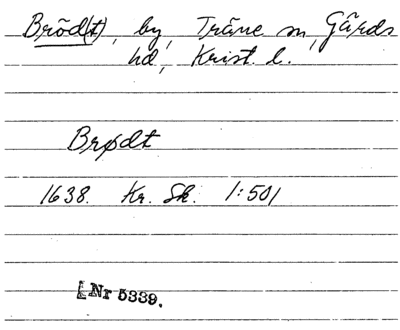 Bröd(t), by, Träne sn, Gärds
hd, Krist. l.
Brødt
1638. Kr. Sk. 1:501
Nr 5339.